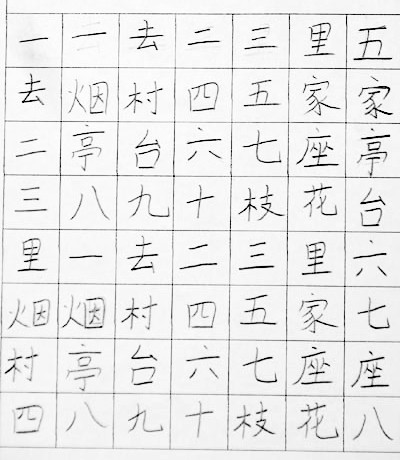 一一去二三里五
去烟村四五家家
二亭台六七座亭
三八九十枝花台
里一去二三里六
烟烟村四五家七
村亭台六七座座
四八九十枝花八